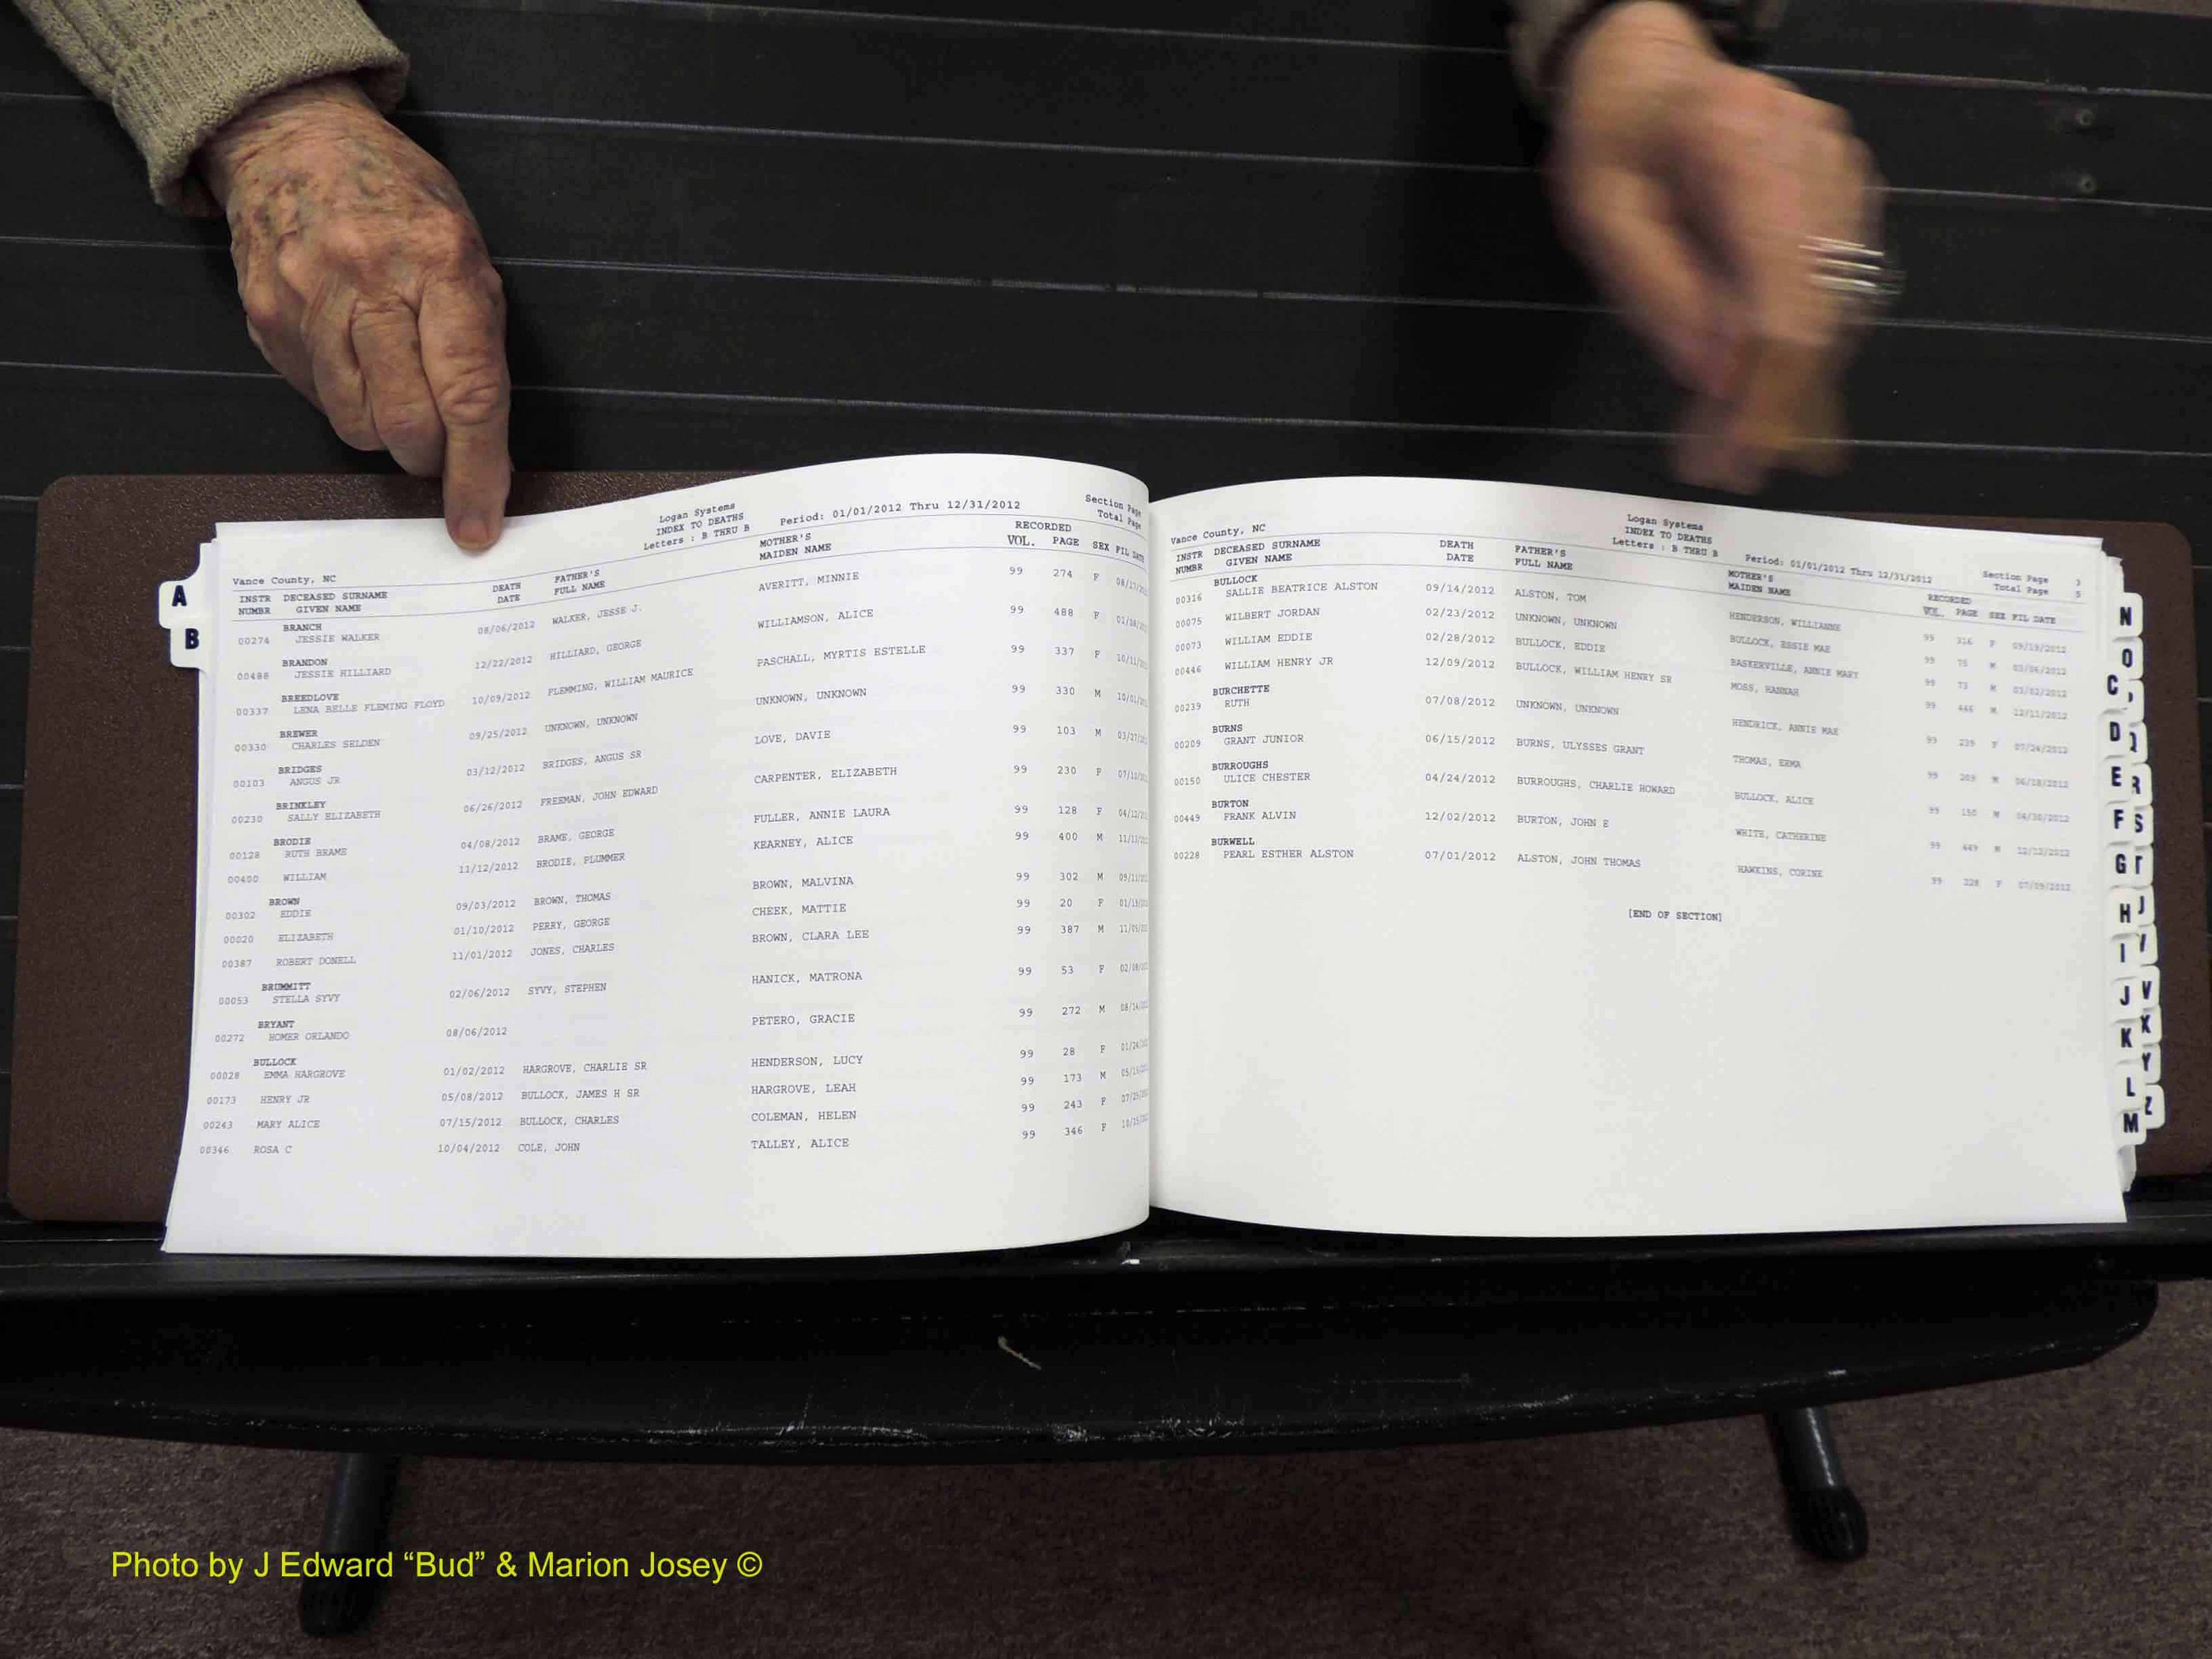 Logan Systems
INDEX TO DEATHS
Letters : B THRU B Period: 01/01/2012 Thru 12/31/2012 Section Page
Total Page
Vance County, NC
INSTR DECEASED SURNAME DEATH FATHER'S MOTHER'S RECORDED
NUMBR GIVEN NAME DATE FULL NAME MAIDEN NAME VOL. PAGE SEX FIL DATE
BRANCH
00274 JESSIE WALKER 08/06/2012 WALKER, JESSE J. AVERITT, MINNIE 99 274 F
BRANDON
00488 JESSIE HILLIARD 12/22/2012 HILLIARD, GEORGE WILLIAMSON, ALICE 99 488 F
BREEDLOVE
00337 LENA BELLE FLEMING FLOYD 10/09/2012 FLEMMING, WILLIAM MAURICE PASCHALL, MYRTIS ESTELLE 99 337 F
BREWER
00330 CHARLES SELDEN 09/25/2012 UNKNOWN, UNKNOWN UNKNOWN, UNKNOWN 99 330 M
BRIDGES
00103 ANGUS JR 03/12/2012 BRIDGES, ANGUS SR LOVE, DAVIE 99 103 M
BRINKLEY
00230 SALLY ELIZABETH 06/26/2012 FREEMAN, JOHN EDWARD CARPENTER, ELIZABETH 99 230 F
BRODIE
00128 RUTH BRAME 04/08/2012 BRAME, GEORGE FULLER, ANNIE LAURA 99 128 F
00400 WILLIAM 11/12/2012 BRODIE, PLUMMER KEARNEY, ALICE 99 400 M
BROWN
00302 EDDIE 09/03/2012 BROWN, THOMAS BROWN, MALVINA 99 302 M
00020 ELIZABETH 01/10/2012 PERRY, GEORGE CHEEK, MATTIE 99 20 F
00387 ROBERT DONELL 11/01/2012 JONES, CHARLES BROWN, CLARA LEE 99 387 M
BRUMMITT
00053 STELLA SYVY 02/06/2012 SYVY, STEPHEN HANICK, MATRONA 99 53 F
BRYANT
00272 HOMER ORLANDO 08/06/2012 PETERO, GRACIE 99 272 M
BULLOCK
00028 EMMA HARGROVE 01/02/2012 HARGROVE, CHARLIE SR HENDERSON, LUCY 99 28 F
00173 HENRY JR 05/08/2012 BULLOCK, JAMES H SR HARGROVE, LEAH 99 173 M
00243 MARY ALICE 07/15/2012 BULLOCK, CHARLES COLEMAN, HELEN 99 243 F
00346 ROSA C 10/04/2012 COLE, JOHN TALLEY, ALICE 99 346 F
A
B
Logan Systems
INDEX TO DEATHS
Letters : B THRU B Period: 01/01/2012 Thru 12/31/2012 Section Page 3
Total Page 5
Vance County, NC
INSTR DECEASED SURNAME DEATH FATHER'S MOTHER'S RECORDED
NUMBR GIVEN NAME DATE FULL NAME MAIDEN NAME VOL. PAGE SEX FIL DATE
BULLOCK
00316 SALLIE BEATRICE ALSTON 09/14/2012 ALSTON, TOM HENDERSON, WILLIANNE 99 316 F 09/19/2012
00075 WILBERT JORDAN 02/23/2012 UNKNOWN, UNKNOWN BULLOCK, ESSIE MAE 99 75 M 03/06/2012
00073 WILLIAM EDDIE 02/28/2012 BULLOCK, EDDIE BASKERVILLE, ANNIE MARY 99 73 M 03/02/2012
00446 WILLIAM HENRY JR 12/09/2012 BULLOCK, WILLIAM HENRY SR MOSS, HANNAH 99 446 M 12/11/2012
BURCHETTE
00239 RUTH 07/08/2012 UNKNOWN, UNKNOWN HENDRICK, ANNIE MAE 99 239 F 07/24/2012
BURNS
00209 GRANT JUNIOR 06/15/2012 BURNS, ULYSSES GRANT THOMAS, ERMA 99 209 M 06/18/2012
BURROUGHS
00150 ULICE CHESTER 04/24/2012 BURROUGHS, CHARLIE HOWARD BULLOCK, ALICE 99 150 M 04/30/2012
BURTON
00449 FRANK ALVIN 12/02/2012 BURTON, JOHN E WHITE, CATHERINE 99 449 M 12/12/2012
BURWELL
00228 PEARL ESTHER ALSTON 07/01/2012 ALSTON, JOHN THOMAS HAWKINS, CORINE 99 228 F 07/09/2012
[END OF SECTION]
N
O
C
D
E R
F S
G T
H
I
J V
K X
Y
L
Z
M
Photo by J Edward “Bud” & Marion Josey ©